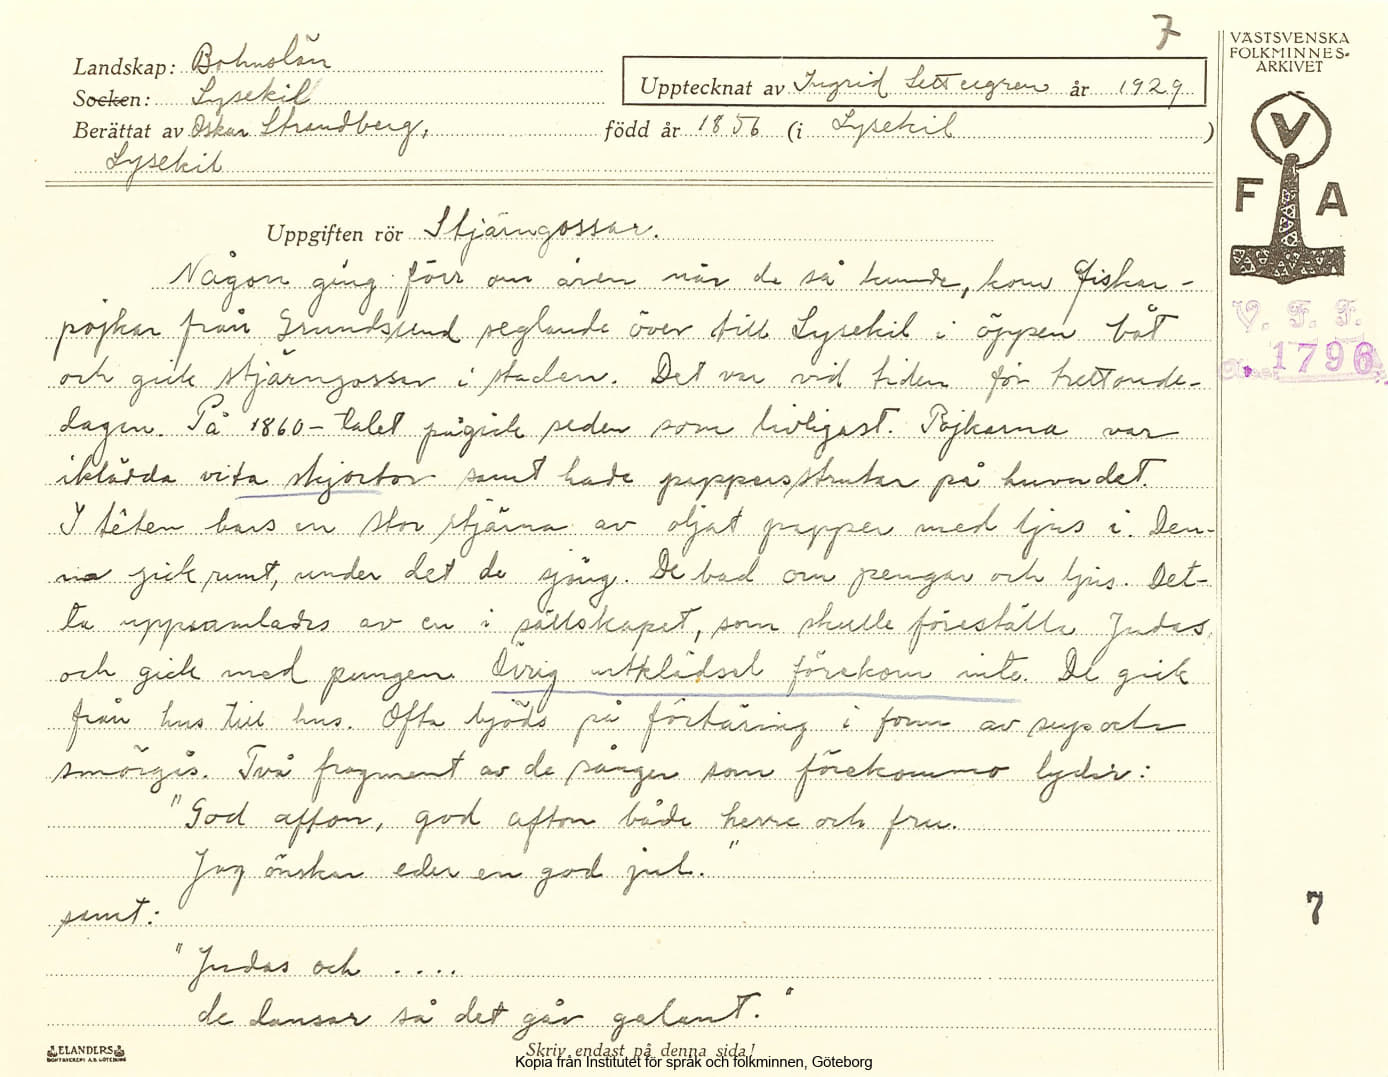 7
VÄSTSVENSKA
FOLKMINNES-
ARKIVET
Landskap: Bohuslän
Socken: Lysekil
Upptecknat av Ingrid Settergren år 1929
Berättat av Oskar Strandberg, född år 1856 (i Lysekil )
Lysekil
V
F A
Uppgiften rör Stjärngossar.
Någon gång förr om åren när de så kunde, kom fiskar-
pojkar från Grundsund seglande över till Lysekil i öppen båt
och gick stjärngossar i staden. Det var vid tiden för trettonde-
dagen. På 1860-talet pågick seden som livligast. Pojkarna var
iklädda vita skjortor samt hade pappersstrutar på huvudet.
I têten bars en stor stjärna av oljat papper med ljus i. Den-
na gick runt, under det de sjöng. De bad om pengar och ljus. Det-
ta uppsamlades av en i sällskapet, som skulle föreställa Judas,
och gick med pungen. Övrig utklädsel förekom inte. De gick
från hus till hus. Ofta bjöds på förtäring i form av sup och
smörgås. Två fragment av de sånger som förekommo lyder:
"God afton, god afton både herre och fru.
Jag önskar eder en god jul."
samt:
"Judas och ....
de dansar så det går galant."
V. F. F.
1796
7
ELANDERS
BOKTRYCKERI A.B. GÖTEBORG
Skriv endast på denna sida!
Kopia från Institutet för språk och folkminnen, Göteborg